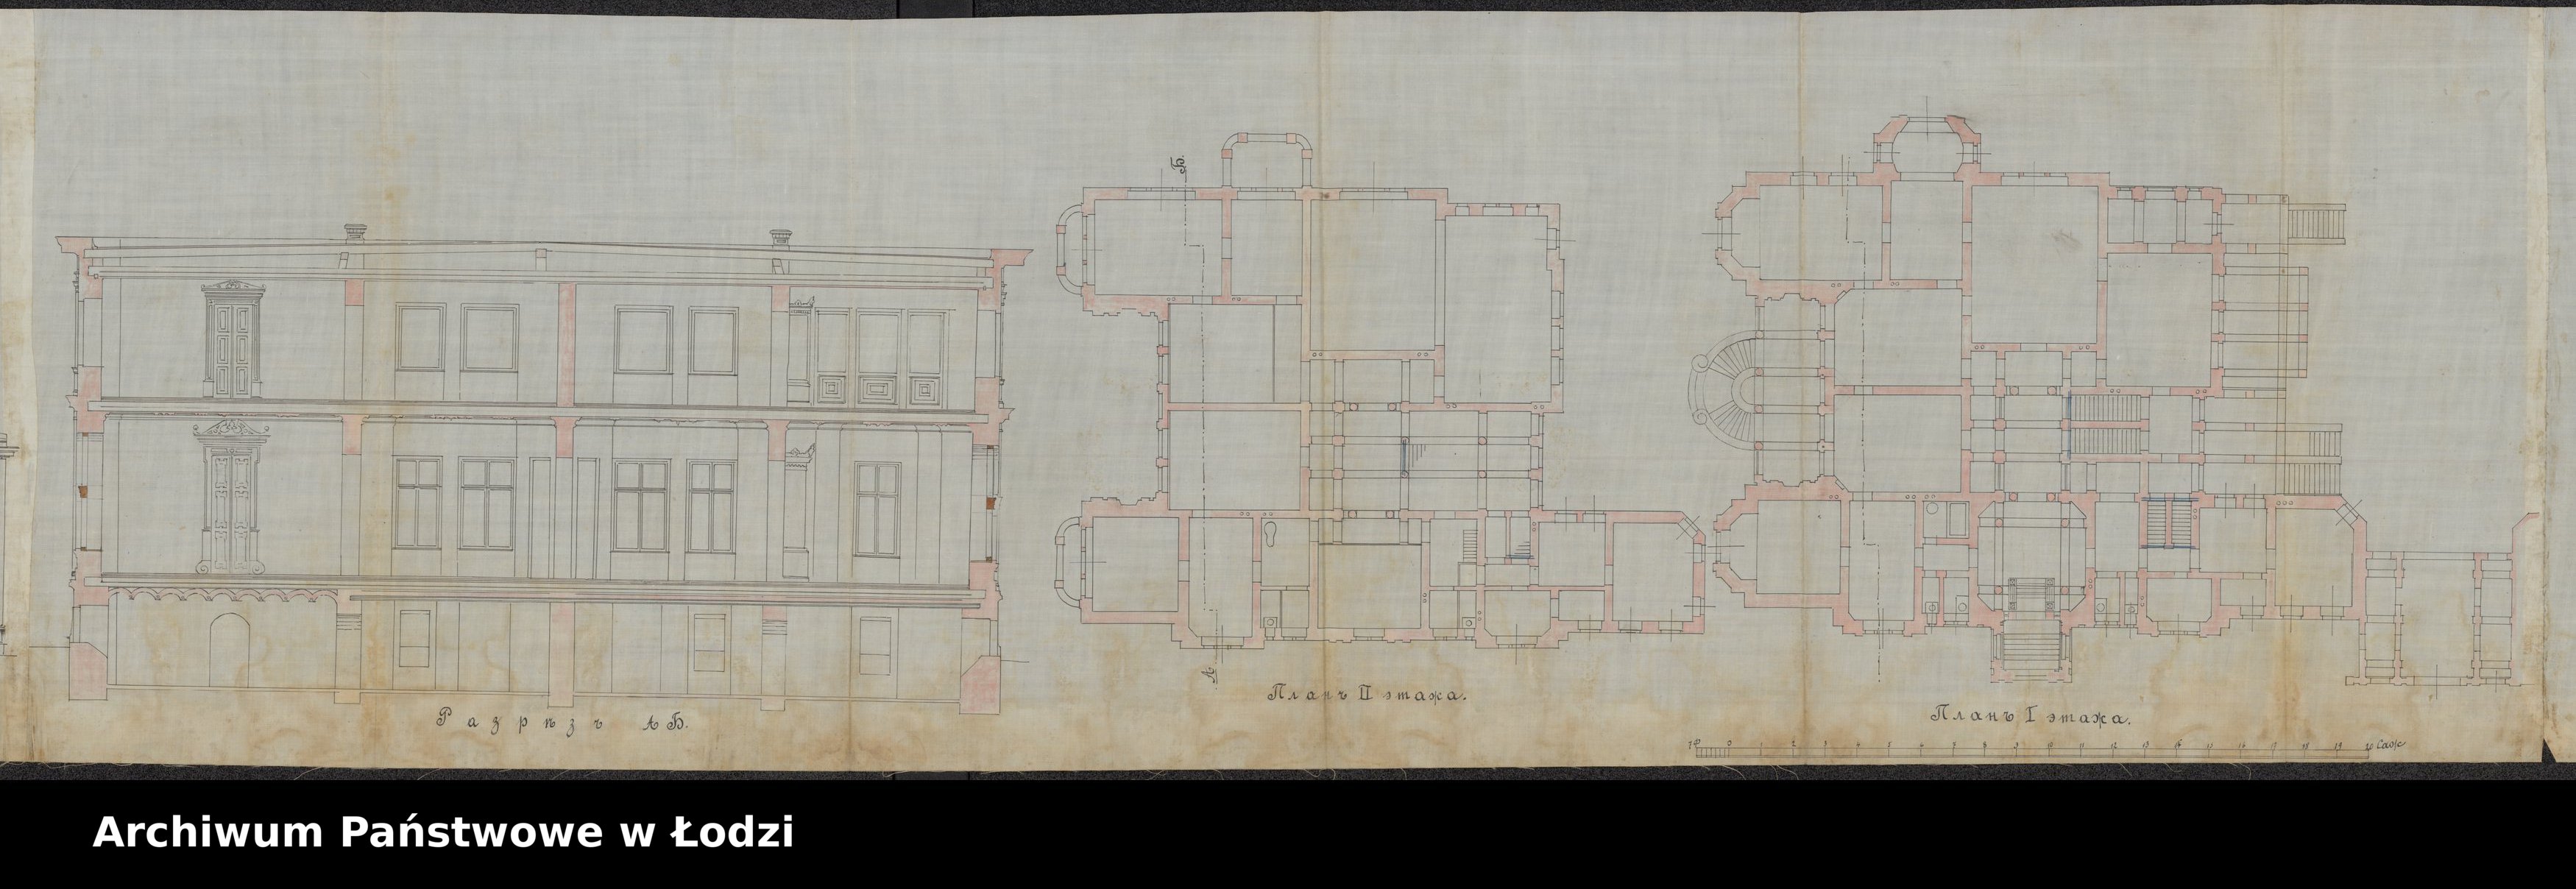 Разрѣзъ АБ.
Б.
А.
Планъ II этажа.
Планъ I этажа.
0 1 2 3 4 5 6 7 8 9 10 11 12 13 14 15 16 17 18 19 20 Саж
Archiwum Państwowe w Łodzi